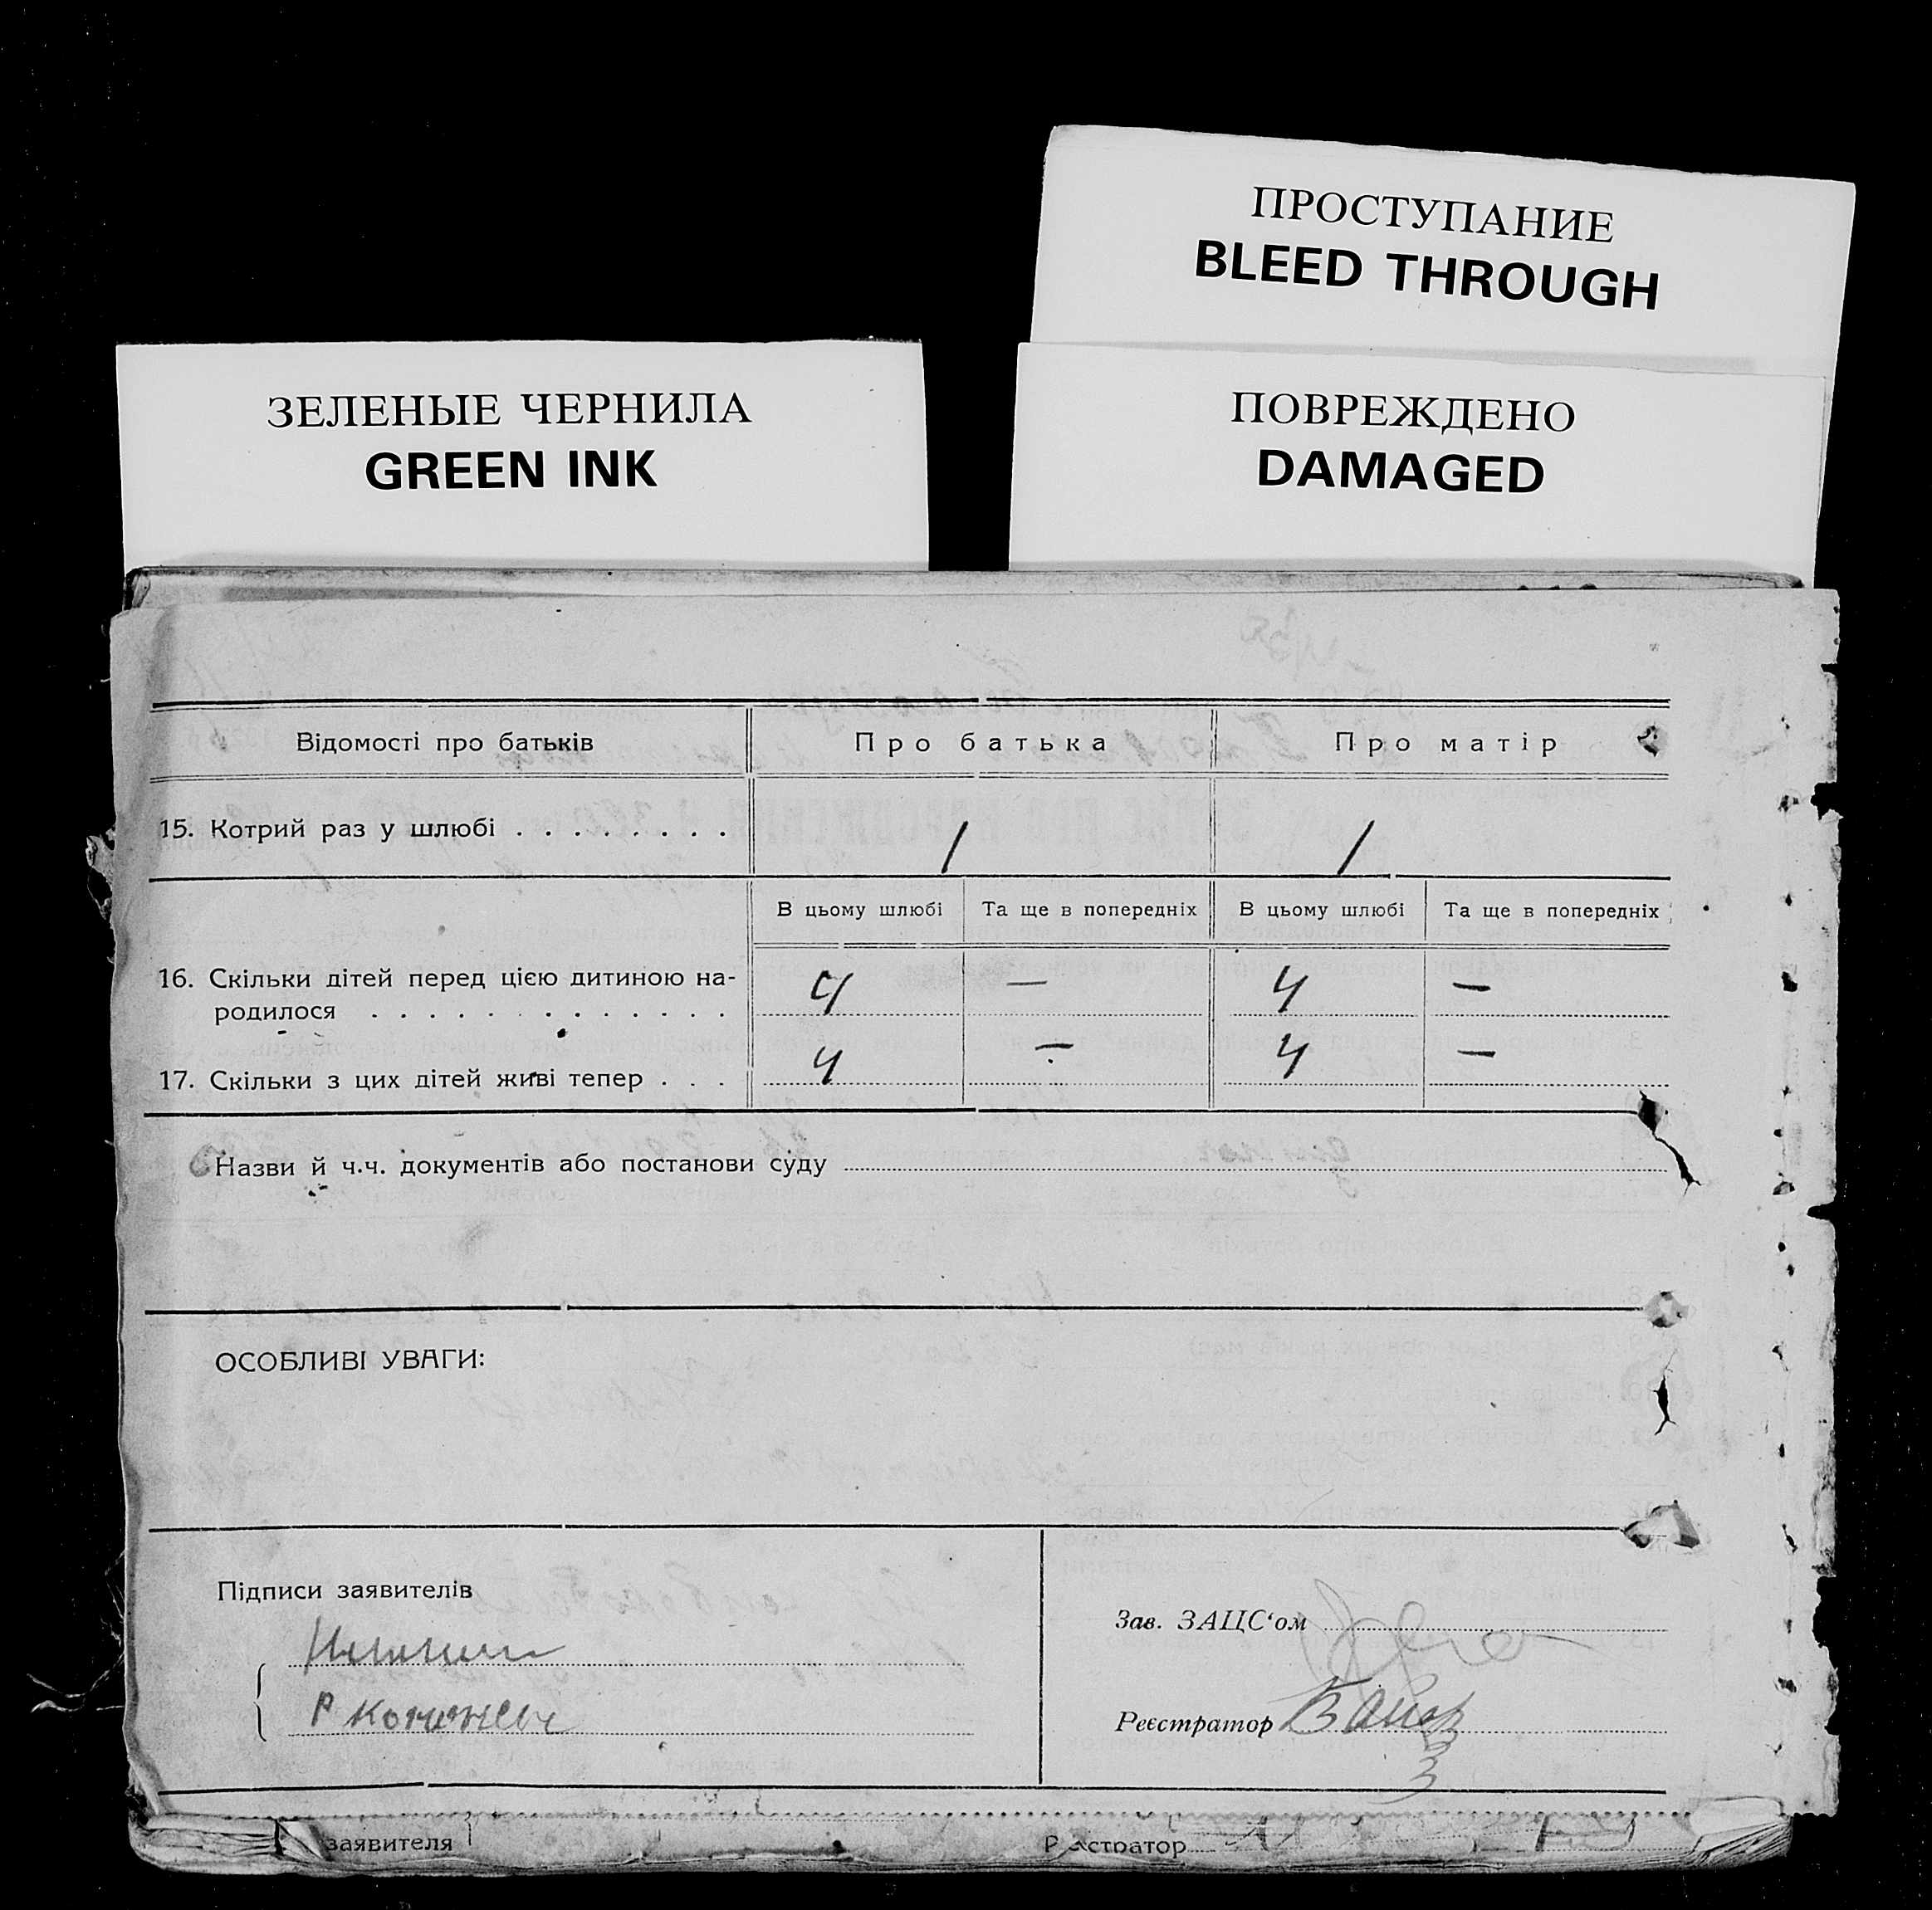 ПРОСТУПАНИЕ
BLEED THROUGH
ЗЕЛЕНЫЕ ЧЕРНИЛА
GREEN INK
ПОВРЕЖДЕНО
DAMAGED
Відомості про батьків Про батька Про матір
15. Котрий раз у шлюбі . . . . . . . . 1 1
В цьому шлюбі Та ще в попередніх В цьому шлюбі Та ще в попередніх
16. Скільки дітей перед цією дитиною на-
родилося . . . . . . . . . . . . . 4 — 4 —
17. Скільки з цих дітей живі тепер . . . 4 — 4 —
Назви й ч.ч. документів або постанови суду
ОСОБЛИВІ УВАГИ:
Підписи заявителів
Зав. ЗАЦС‘ом
Реєстратор
заявителя